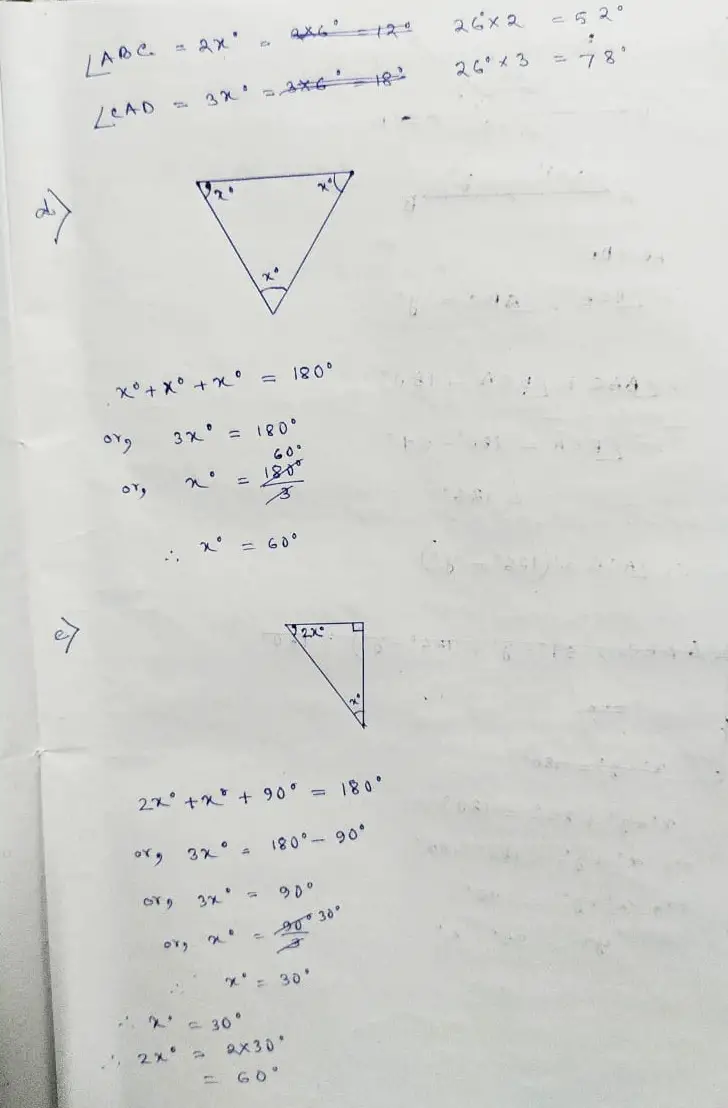 ∠ABC = 2x° = 2×6° = 12° 26°×2 = 52°
∠CAD = 3x° = 3×6° = 18° 26°×3 = 78°
d)
x° x°
x°
x° + x° + x° = 180°
or, 3x° = 180°
60°
or, x° = 180°/3
∴ x° = 60°
e)
2x°
x°
2x° + x° + 90° = 180°
or, 3x° = 180° - 90°
or, 3x° = 90°
or, x° = 90°/3 30°
∴ x° = 30°
∴ x° = 30°
∴ 2x° = 2×30°
= 60°